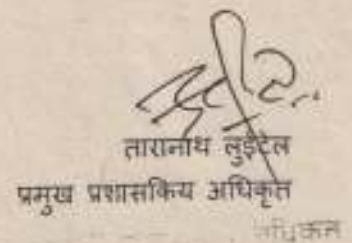 तारानाथ लुइटेल
प्रमुख प्रशासकिय अधिकृत